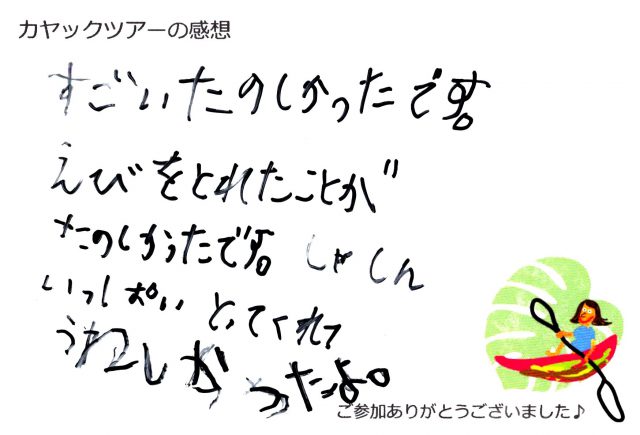 カヤックツアーの感想
すごいたのしかったです。
えびをとれたことが
たのしかったです。しゃしん
いっぱいとってくれて
うれしかったよ。
ご参加ありがとうございました♪